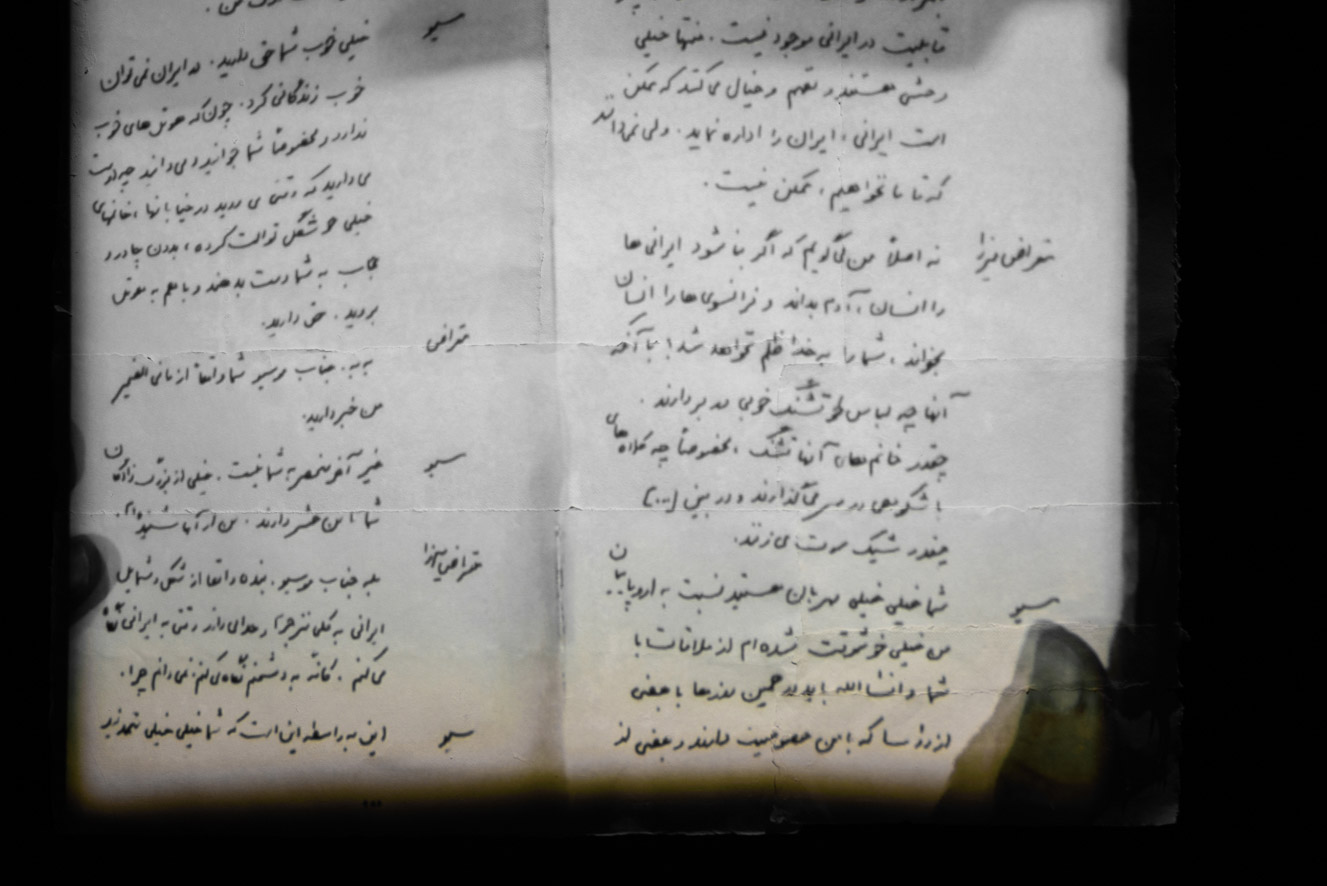 قابلیت در ایرانی موجود نیست. منتها خیلی
وحشی هستند و نفهم و خیال می‌کنند که ممکن
است ایرانی، ایران را اداره نماید. ولی نمی‌دانند
که تا ما نخواهیم، ممکن نیست.
نه اصلاً من می‌گویم که اگر بنا شود ایرانی‌ها
را انسان، آدم بداند و فرانسوی‌ها را انسان
بخواند، شما را به خدا ظلم نخواهد شد! با آنکه
آنها چه لباس‌های قشنگ خوبی در بر دارند.
چقدر خانم‌های آنها قشنگ، بخصوصاً چه کلاه‌های
باشکوهی در سر می‌گذارند و در بینی (...)
چقدر شیک سوت می‌زنند.
موسیو
شما خیلی خیلی مهربان هستید نسبت به اروپاییان
من خیلی خوشوقت شده‌ام از ملاقات با
شما و انشاالله باید در همین روزها با بعضی
از رؤسا که با من خصوصیت دارند و بعضی از
موسیو
خیلی خوب شما حق دارید. در ایران نمی‌توان
خوب زندگانی کرد. چون که هوتل‌های خوب
ندارد و بخصوصاً شما جوانید و می‌دانید چه لذت
می‌دارید که وقتی می‌روید در خیابانها، خانمهای
خیلی خوشگل توالت کرده، بدون چادر و
حجاب به شما دست بدهند و با هم به هوتل
بروید. حق دارید.
به به. جناب موسیو شما واقعاً از مافی الضمیر
من خبر دارید.
موسیو
خیر آخر منحصر به شما نیست. خیلی از بزرگ‌زادگان
شما این عشر دارند. من از آنها شنیده‌ام.
بله جناب موسیو. بنده واقعاً از شکل و شمایل
ایرانی به کلی متنفرم
می‌کنم. کانّه به دشمنم نگاه می‌کنم. نمی‌دانم چرا.
موسیو
این به واسطه این است که شما خیلی خیلی متمدنید